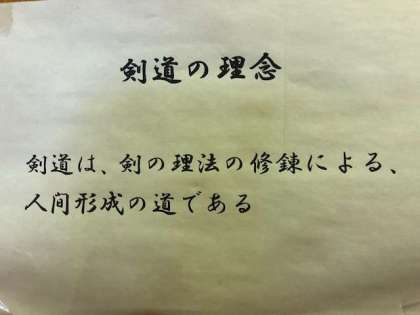 剣道の理念
剣道は、剣の理法の修錬による、
人间形成の道である